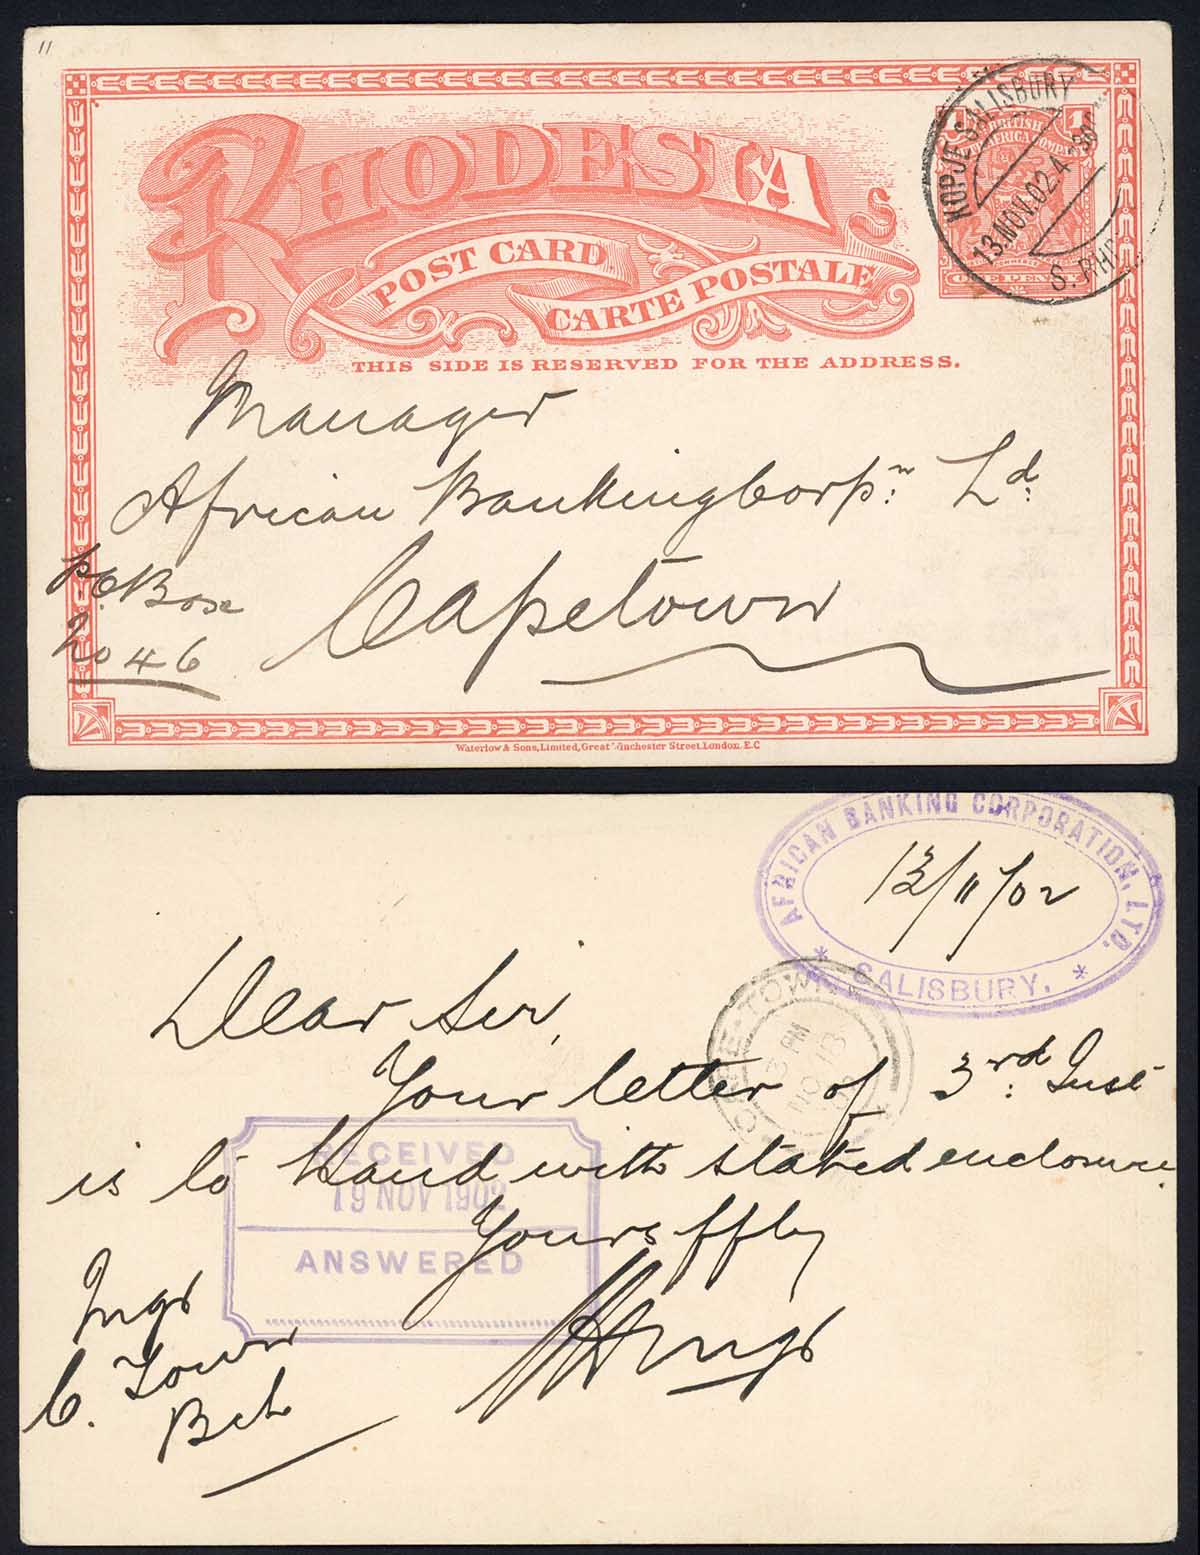 11
RHODESIA
POST CARD
CARTE POSTALE
THIS SIDE IS RESERVED FOR THE ADDRESS.
1 1
BRITISH
ONE PENNY
KOPJE SALISBURY
13.NOV.02.4
S. RH
Manager
African Banking Corpn: Ld:
P.O. Box
2046
Capetown
Waterlow & Sons, Limited, Great Winchester Street, London. E.C
AFRICAN BANKING CORPORATION, LTD.
13/11/02
* SALISBURY. *
TOWN
PM
NO 18
Dear Sir,
Your letter of 3rd: Inst
is to hand with stated enclosure.
Yours ffly
RECEIVED
19 NOV 1902
ANSWERED
Mgr
C. Town
Bch